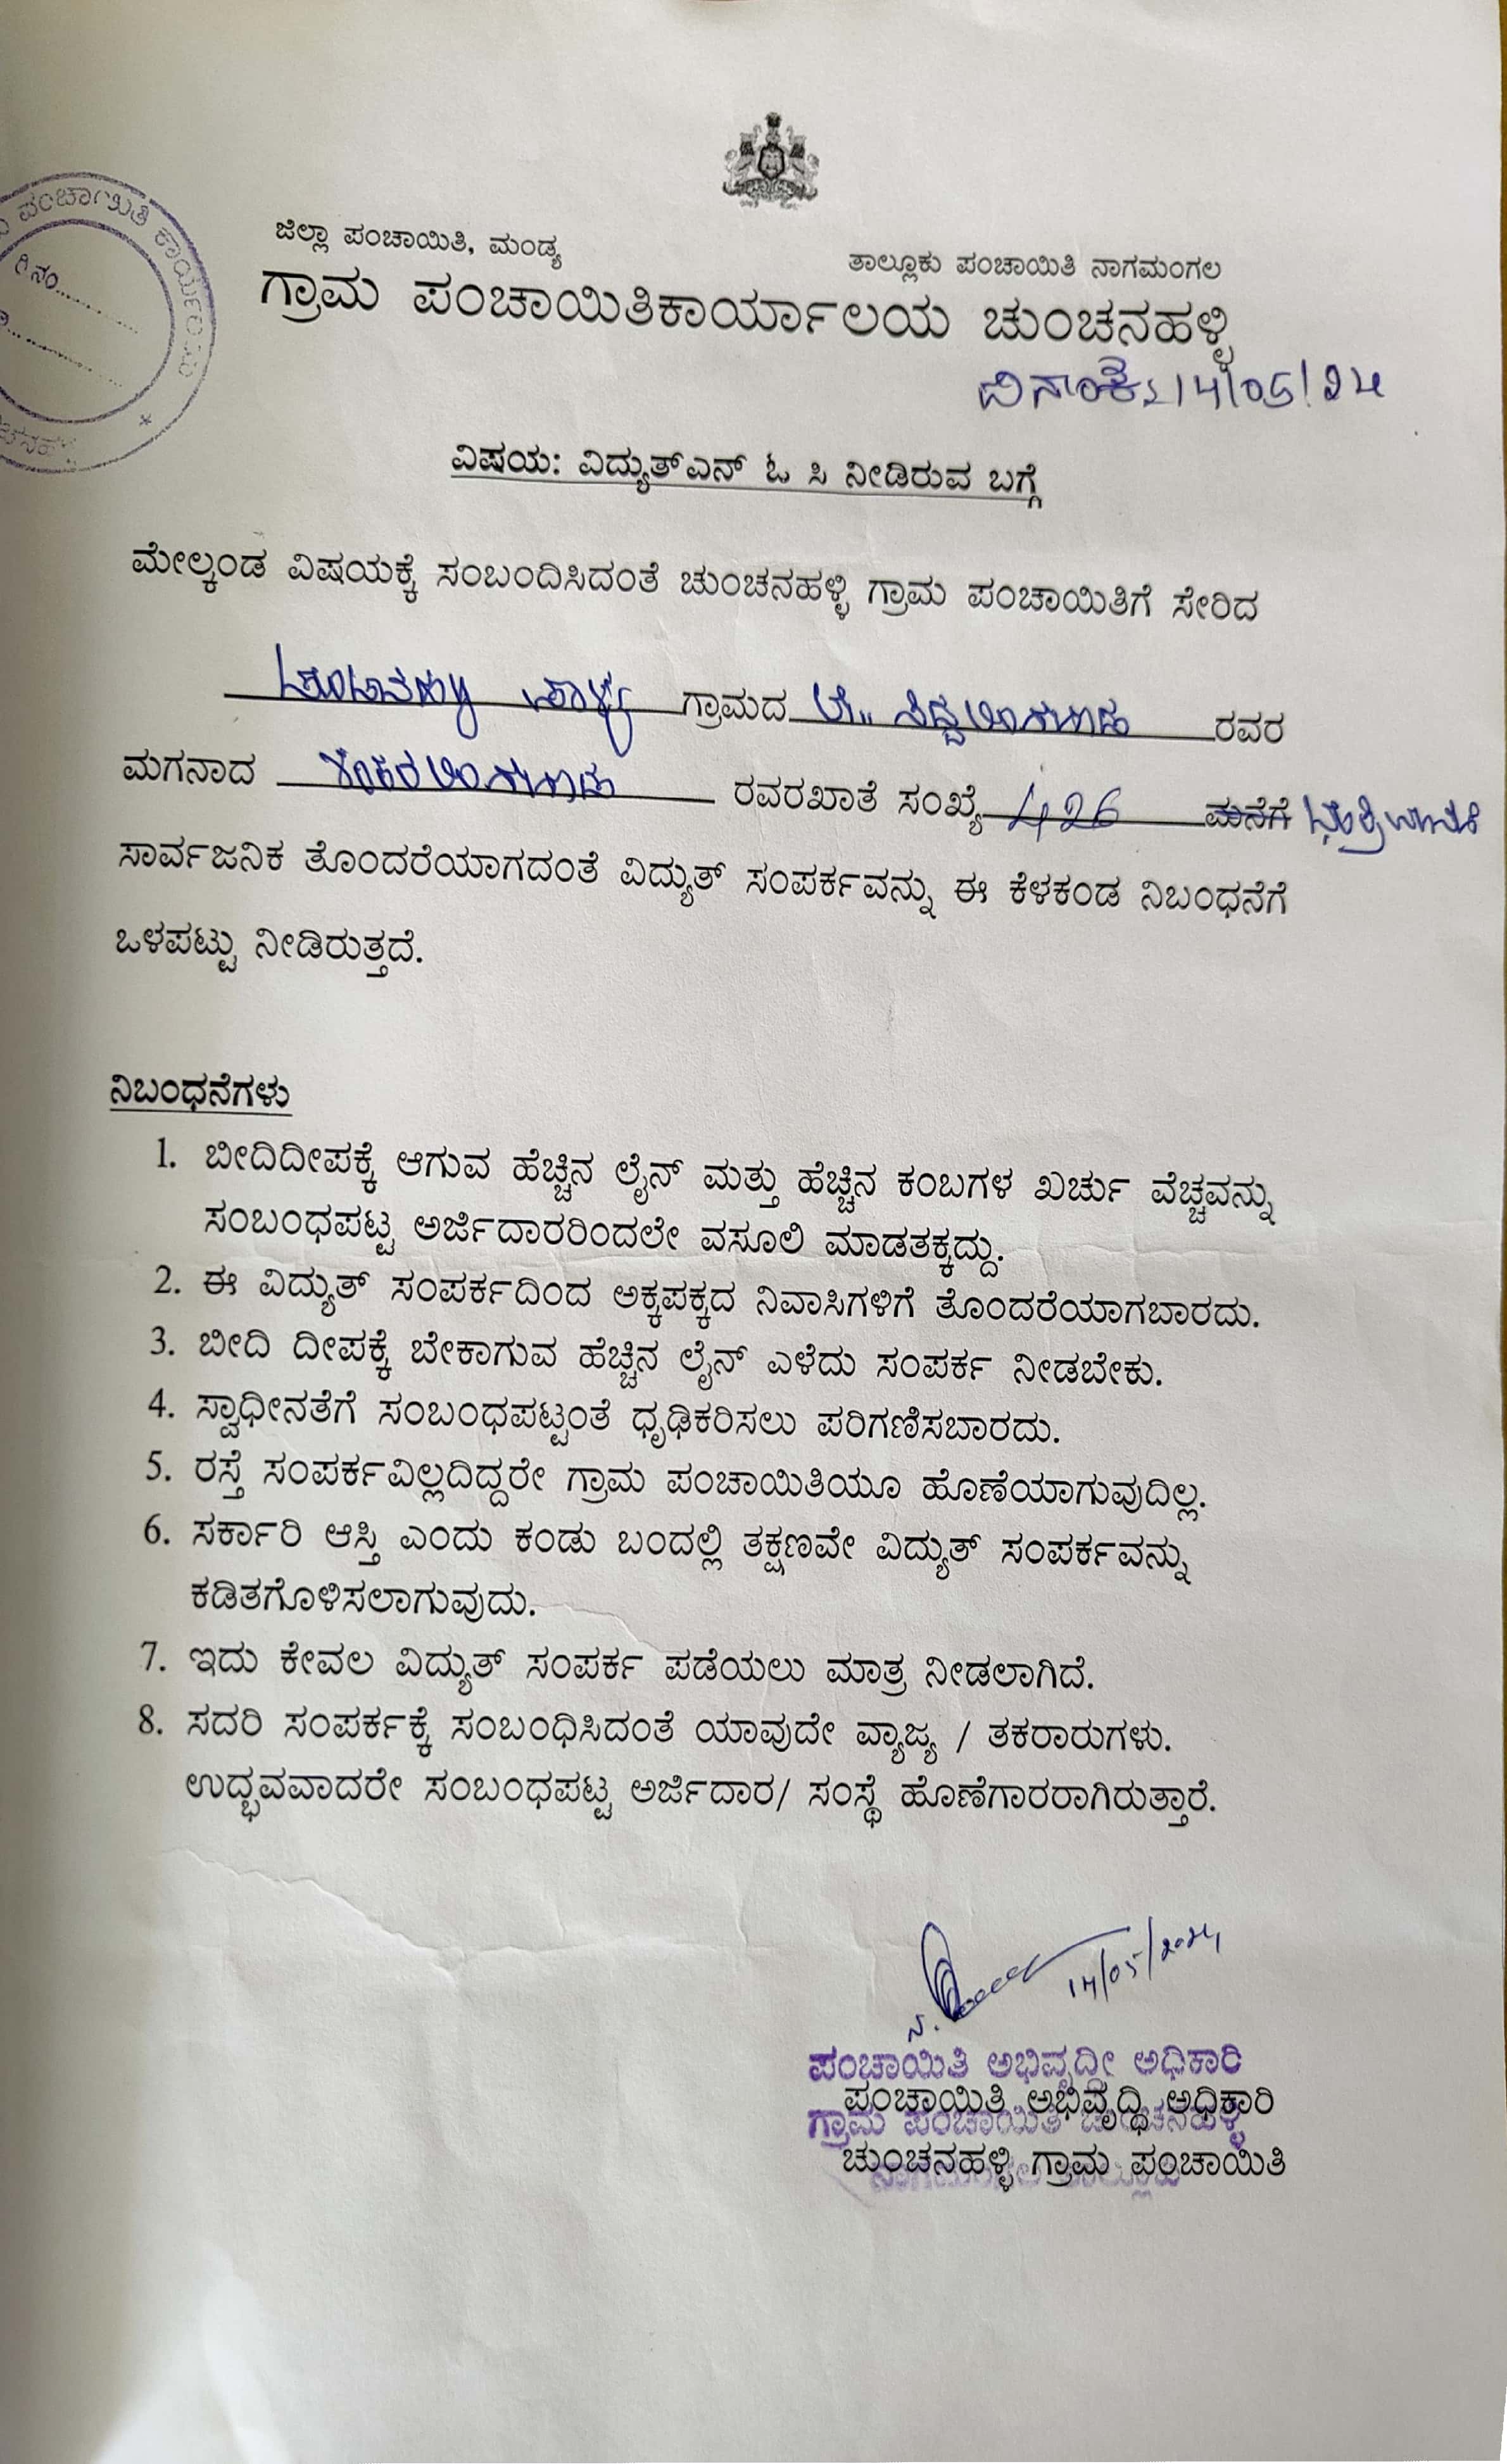 ಪಂಚಾಯಿತಿ ಕಾರ್ಯಾಲಯ
ಜಿಲ್ಲಾ ಪಂಚಾಯಿತಿ, ಮಂಡ್ಯ
ತಾಲ್ಲೂಕು ಪಂಚಾಯಿತಿ ನಾಗಮಂಗಲ
ಗ್ರಾಮ ಪಂಚಾಯಿತಿಕಾರ್ಯಾಲಯ ಚುಂಚನಹಳ್ಳಿ
ದಿನಾಂಕ: 14/05/24
ವಿಷಯ: ವಿದ್ಯುತ್‌ಎನ್ ಓ ಸಿ ನೀಡಿರುವ ಬಗ್ಗೆ
ಮೇಲ್ಕಂಡ ವಿಷಯಕ್ಕೆ ಸಂಬಂದಿಸಿದಂತೆ ಚುಂಚನಹಳ್ಳಿ ಗ್ರಾಮ ಪಂಚಾಯಿತಿಗೆ ಸೇರಿದ
ಚುಂಚನಹಳ್ಳಿ ಪಾಳ್ಯ ಗ್ರಾಮದ ಲೇ.. ಸಿದ್ದಲಿಂಗಯ್ಯ ರವರ
ಮಗನಾದ ರವರಖಾತೆ ಸಂಖ್ಯೆ 426 ಮನೆಗೆ
ಸಾರ್ವಜನಿಕ ತೊಂದರೆಯಾಗದಂತೆ ವಿದ್ಯುತ್ ಸಂಪರ್ಕವನ್ನು ಈ ಕೆಳಕಂಡ ನಿಬಂಧನೆಗೆ
ಒಳಪಟ್ಟು ನೀಡಿರುತ್ತದೆ.
ನಿಬಂಧನೆಗಳು
1. ಬೀದಿದೀಪಕ್ಕೆ ಆಗುವ ಹೆಚ್ಚಿನ ಲೈನ್ ಮತ್ತು ಹೆಚ್ಚಿನ ಕಂಬಗಳ ಖರ್ಚು ವೆಚ್ಚವನ್ನು
ಸಂಬಂಧಪಟ್ಟ ಅರ್ಜಿದಾರರಿಂದಲೇ ವಸೂಲಿ ಮಾಡತಕ್ಕದ್ದು.
2. ಈ ವಿದ್ಯುತ್ ಸಂಪರ್ಕದಿಂದ ಅಕ್ಕಪಕ್ಕದ ನಿವಾಸಿಗಳಿಗೆ ತೊಂದರೆಯಾಗಬಾರದು.
3. ಬೀದಿ ದೀಪಕ್ಕೆ ಬೇಕಾಗುವ ಹೆಚ್ಚಿನ ಲೈನ್ ಎಳೆದು ಸಂಪರ್ಕ ನೀಡಬೇಕು.
4. ಸ್ವಾಧೀನತೆಗೆ ಸಂಬಂಧಪಟ್ಟಂತೆ ಧೃಢಿಕರಿಸಲು ಪರಿಗಣಿಸಬಾರದು.
5. ರಸ್ತೆ ಸಂಪರ್ಕವಿಲ್ಲದಿದ್ದರೇ ಗ್ರಾಮ ಪಂಚಾಯಿತಿಯೂ ಹೊಣೆಯಾಗುವುದಿಲ್ಲ.
6. ಸರ್ಕಾರಿ ಆಸ್ತಿ ಎಂದು ಕಂಡು ಬಂದಲ್ಲಿ ತಕ್ಷಣವೇ ವಿದ್ಯುತ್ ಸಂಪರ್ಕವನ್ನು
ಕಡಿತಗೊಳಿಸಲಾಗುವುದು.
7. ಇದು ಕೇವಲ ವಿದ್ಯುತ್ ಸಂಪರ್ಕ ಪಡೆಯಲು ಮಾತ್ರ ನೀಡಲಾಗಿದೆ.
8. ಸದರಿ ಸಂಪರ್ಕಕ್ಕೆ ಸಂಬಂಧಿಸಿದಂತೆ ಯಾವುದೇ ವ್ಯಾಜ್ಯ / ತಕರಾರುಗಳು.
ಉದ್ಭವವಾದರೇ ಸಂಬಂಧಪಟ್ಟ ಅರ್ಜಿದಾರ/ ಸಂಸ್ಥೆ ಹೊಣೆಗಾರರಾಗಿರುತ್ತಾರೆ.
14/05/2024
ಪಂಚಾಯಿತಿ ಅಭಿವೃದ್ಧೀ ಅಧಿಕಾರಿ
ಪಂಚಾಯಿತಿ ಅಭಿವೃದ್ಧಿ ಅಧಿಕಾರಿ
ಗ್ರಾಮ ಪಂಚಾಯಿತಿ ಚುಂಚನಹಳ್ಳಿ
ಚುಂಚನಹಳ್ಳಿ ಗ್ರಾಮ ಪಂಚಾಯಿತಿ